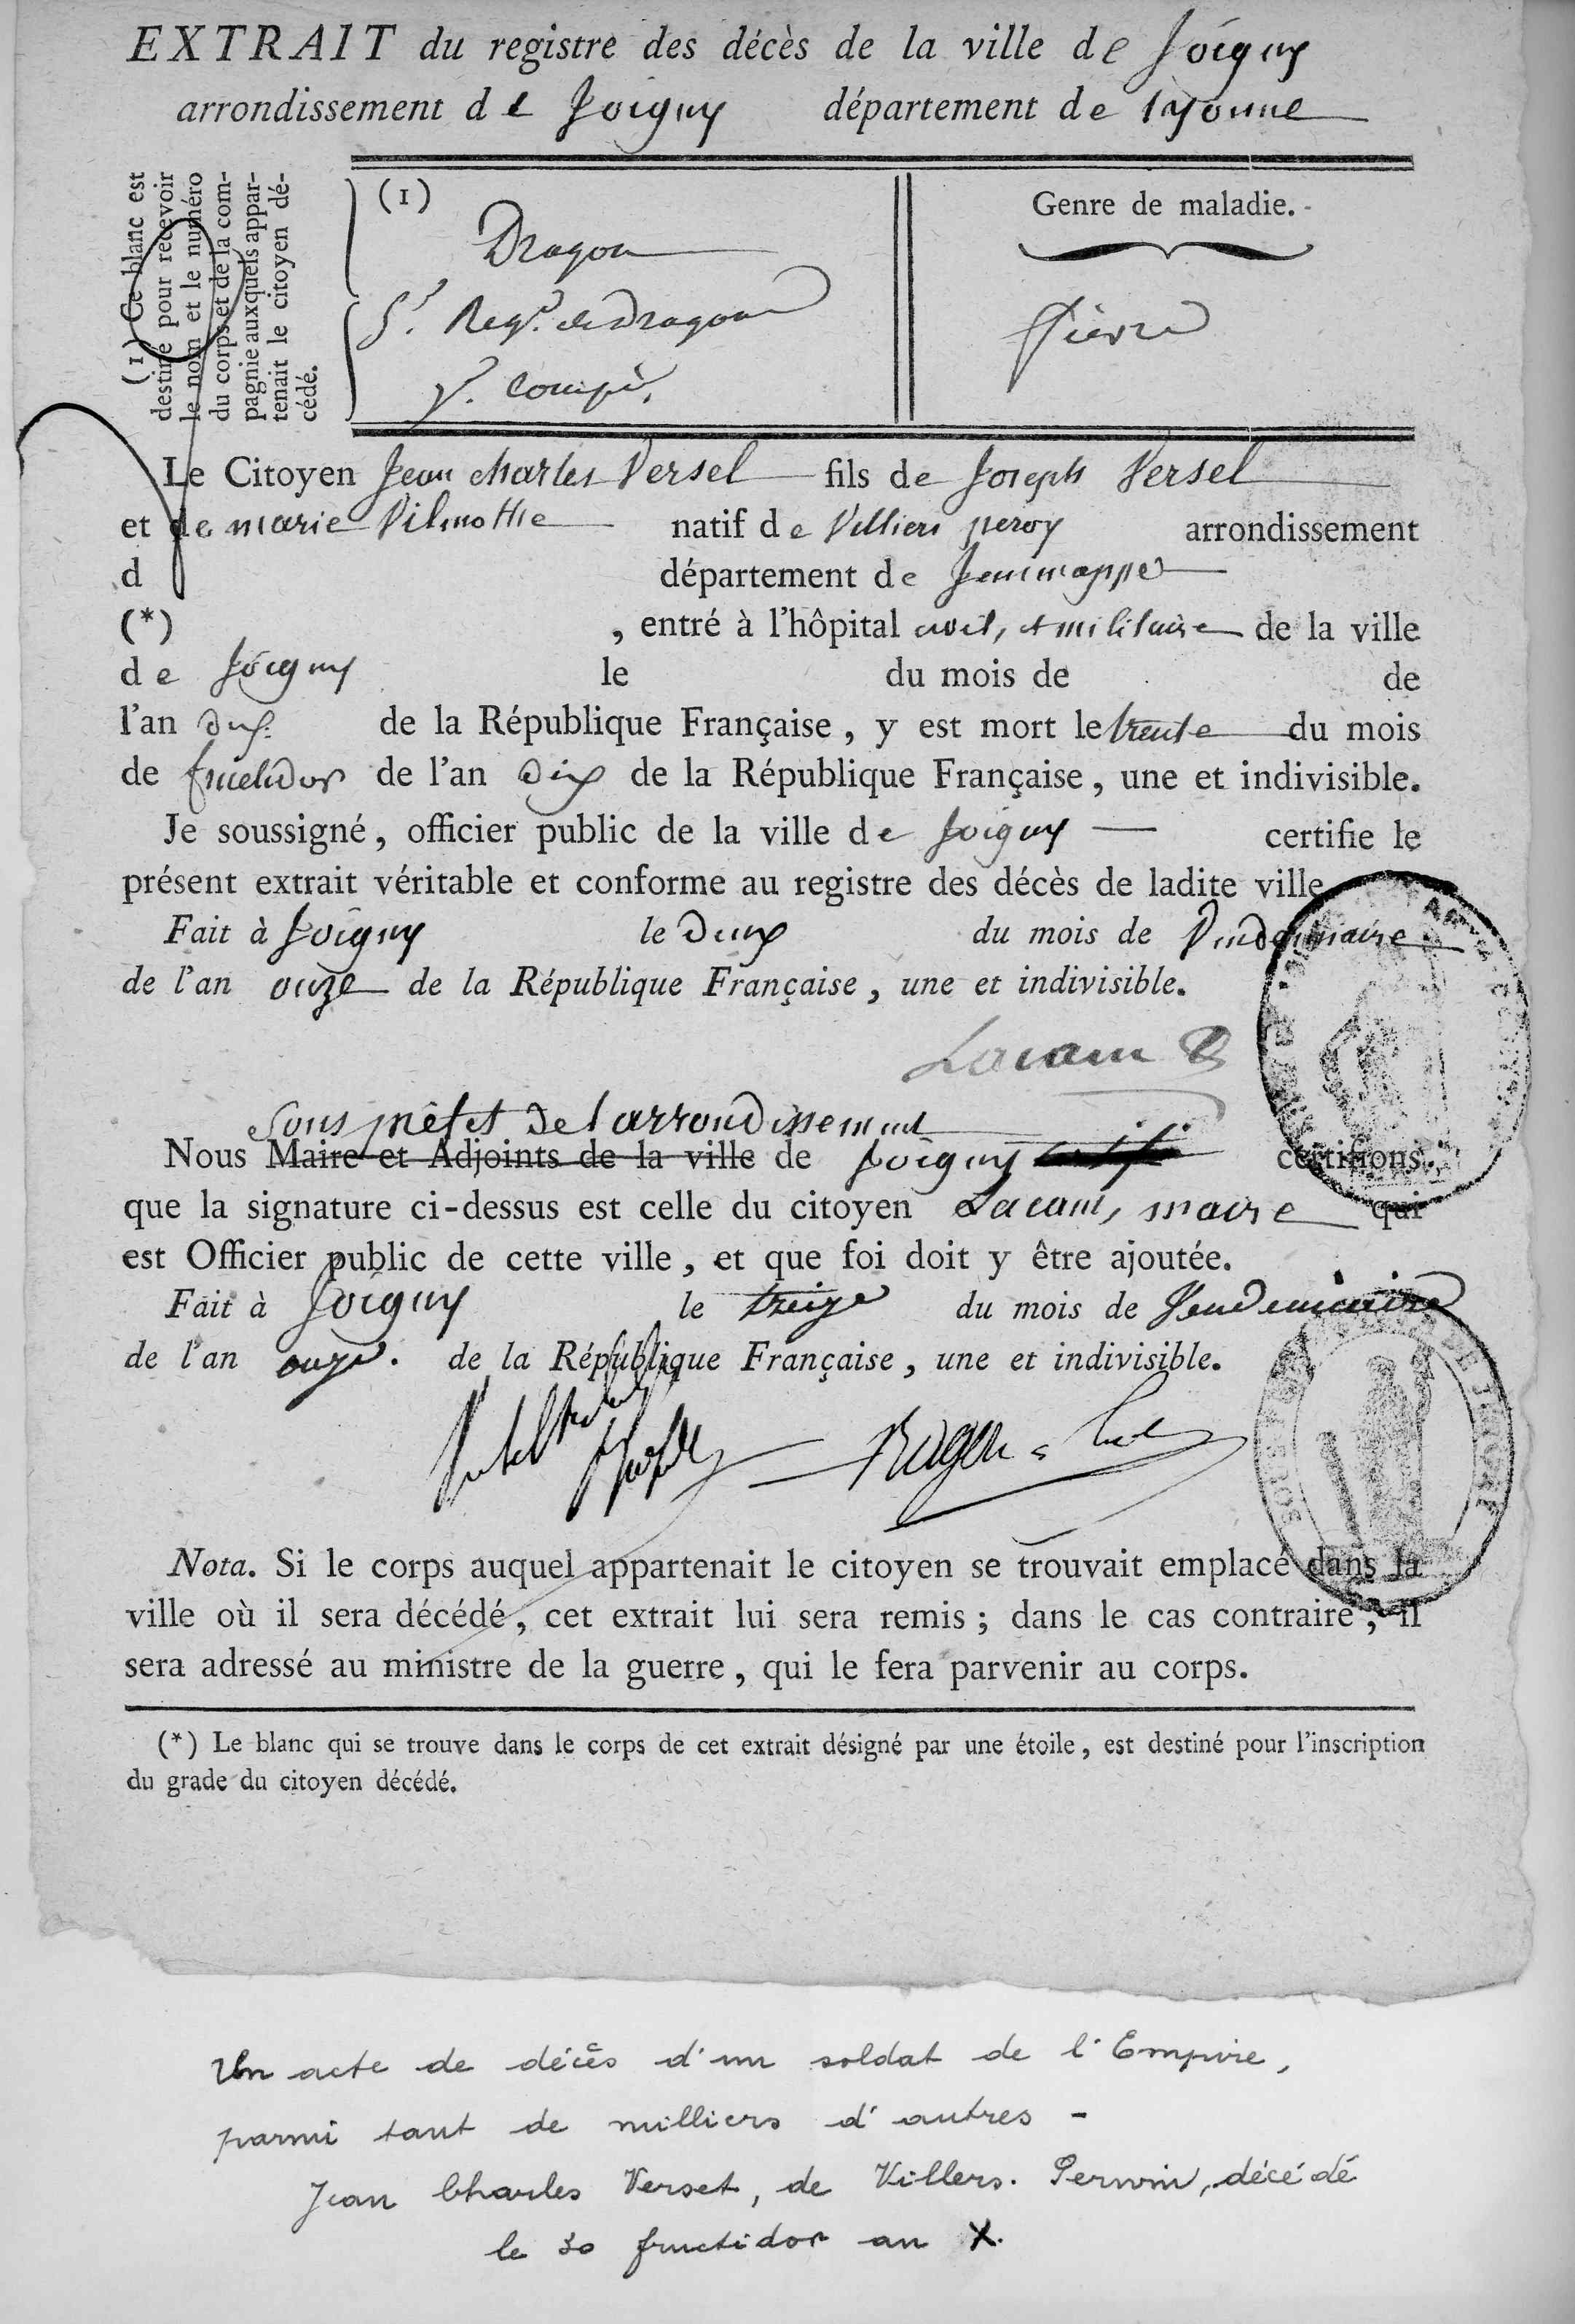 EXTRAIT du registre des décès de la ville de Joigny
arrondissement de Joigny département de l'Yonne
(1) Ce blanc est
destiné pour recevoir
le nom et le numéro
du corps et de la com-
pagnie auxquels appar-
tenait le citoyen dé-
cédé.
(1)
Dragon
Regt. de Dragons
Compie.
Genre de maladie.
fievre
Le Citoyen Jean charles Versel fils de Joseph Versel
et de marie Vilmotte natif de Villiers peroy arrondissement
d département de Jemmappe
(*) , entré à l'hôpital civil, et militaire de la ville
de Joigny le du mois de de
l'an dix de la République Française, y est mort le trente du mois
de fructidor de l'an dix de la République Française, une et indivisible.
Je soussigné, officier public de la ville de Joigny certifie le
présent extrait véritable et conforme au registre des décès de ladite ville
Fait à Joigny le deux du mois de Vendemiaire
de l'an onze de la République Française, une et indivisible.
Lacam
Sous préfet de l'arrondissement
Nous Maire et Adjoints de la ville de Joigny certifions
que la signature ci-dessus est celle du citoyen Lacam, maire qui
est Officier public de cette ville, et que foi doit y être ajoutée.
Fait à Joigny le treize du mois de Vendemiaire
de l'an onze. de la République Française, une et indivisible.
Nota. Si le corps auquel appartenait le citoyen se trouvait emplacé dans la
ville où il sera décédé, cet extrait lui sera remis ; dans le cas contraire, il
sera adressé au ministre de la guerre, qui le fera parvenir au corps.
(*) Le blanc qui se trouve dans le corps de cet extrait désigné par une étoile, est destiné pour l'inscription
du grade du citoyen décédé.
Un acte de décès d'un soldat de l'Empire,
parmi tant de milliers d'autres -
Jean Charles Verset, de Villers. Perwin, décédé
le 30 fructidor an X.